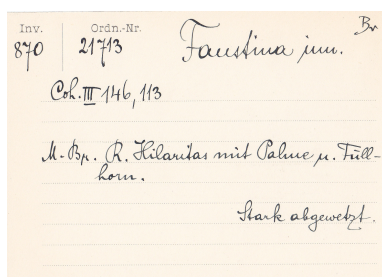 Br
Inv. Ordn.-Nr.
870 21713 Faustina iun.
Coh. III 146, 113
M. Br. R. Hilaritas mit Palme u. Füll-
horn.
Stark abgewetzt.